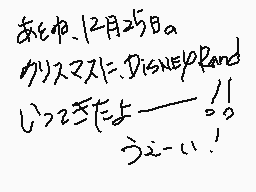 あとね、12月25日の
クリスマスに、DiSNEYRand
いってきたよー!!
うぇーい!